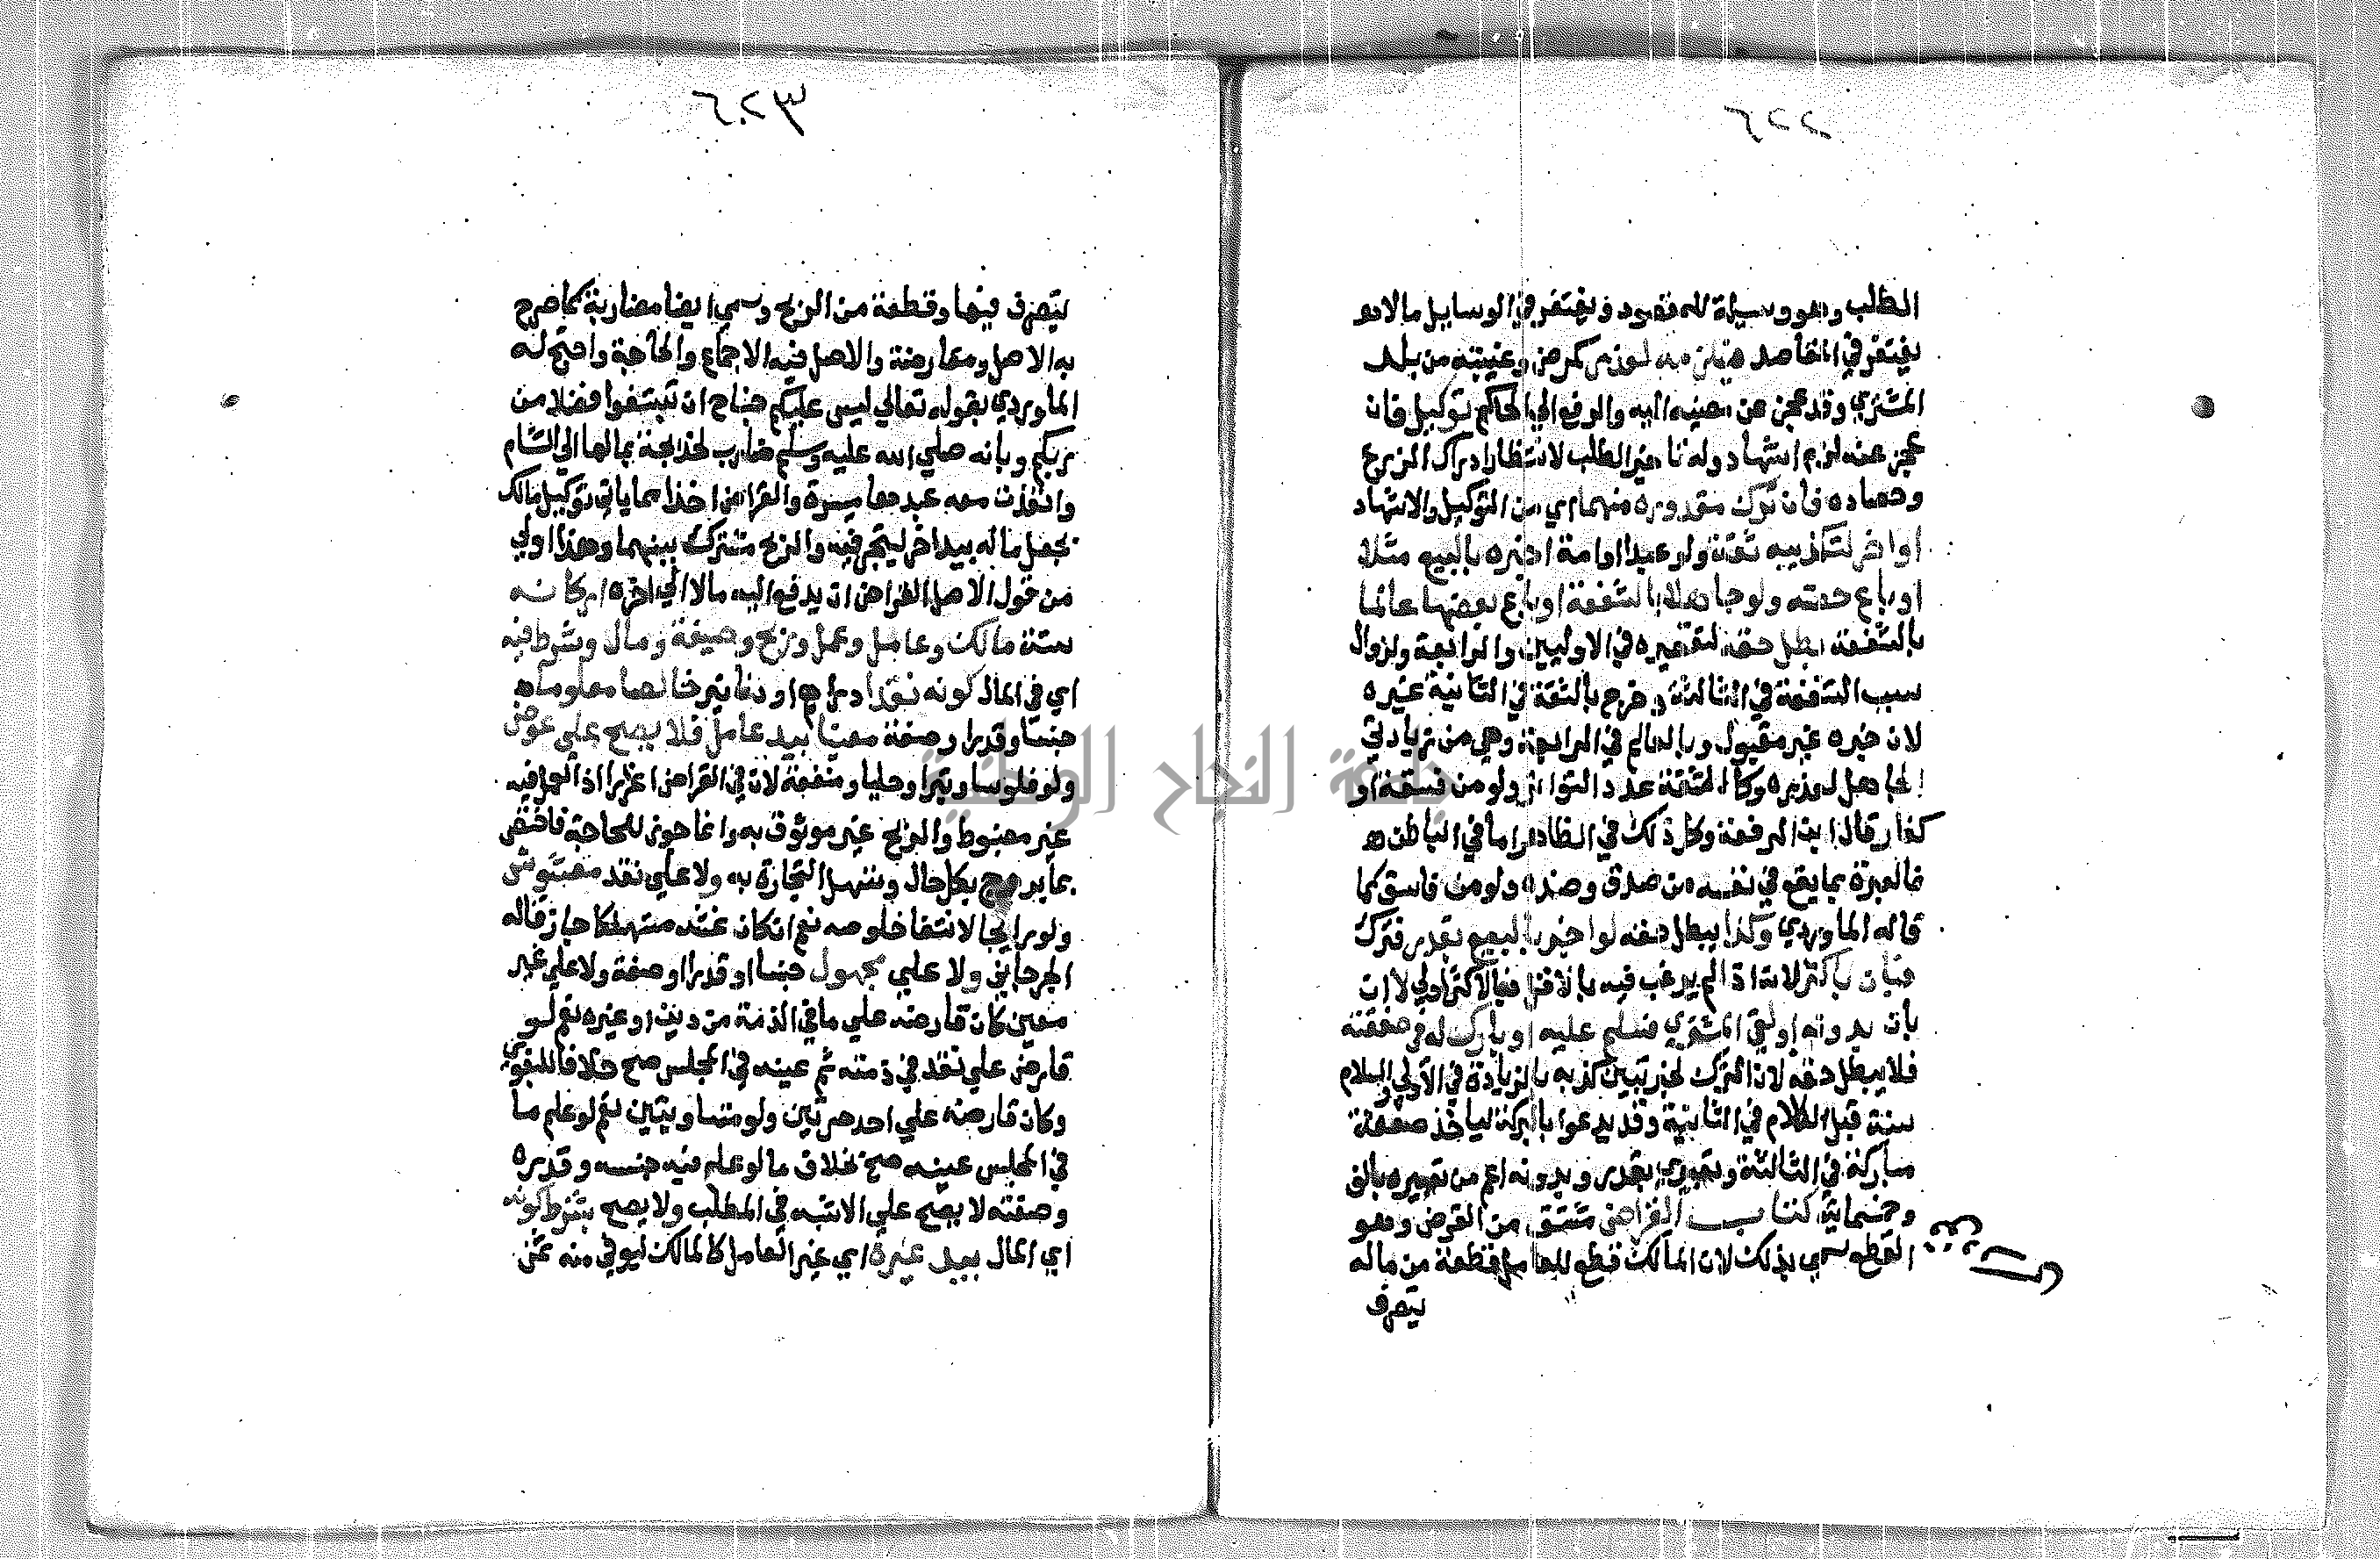 الطلب وهو وسيلة للمقصود ويغتفر في الوسايل ما لا
يغتفر في المقاصد فيلزمه لعذر كمرض وغيبته من بلد
المشتري وقد عجز عن مضيه اليه والرفع الي الحاكم توكيل فان
عجز عنه لزم اشهاد وله تاخير الطلب لانتظار ادراك الزرع
وحصاده فان ترك مقدوره منهما اي من التوكيل والاشهاد
او اخر لتكذيبه ثقة ولو عبدا او امة اخبره بالبيع مثلا
او باع حصته ولو جاهلا بالشفعة او باع بعضها عالما
بالشفعة بطل حقه لتقصيره في الاوليين والرابعة ولزوال
سبب الشفعة في الثالثة وخرج بالثقة في الثانية غيره
لان خبره غير مقبول وبالعالم في الرابعة وهي من زيادتي
الجاهل لعذره وكالثقة عدد التواتر ولو من فسقة او
كفار قال ابن الرفعة وكل ذلك في الظاهر اما في الباطن
فالعبرة بما يقع في نفسه من صدق وضده ولو من فاسق كما
قاله الماوردي وكذا يبطل حقه لو اخبر بالبيع بقدر فترك
فبان باكثر لانه اذا لم يرغب فيه بالاقل فبالاكثر اولي لا ان
بان بدونه او لقي المشتري فسلم عليه او بارك له في صفقته
فلا يبطل حقه لان الترك لخبر تبين كذبه بالزيادة في الاولي والسلام
سنة قبل الكلام في الثانية وقد يدعوا بالبركة لياخذ صفقة
مباركة في الثالثة وتعبيري بقدر وبدونه اعم من تعبيره بالف
وخمسماية كتاب القراض مشتق من القرض وهو
القطع سمي بذلك لان المالك قطع للعامل قطعة من ماله
يتصرف
٢٠٢٣
يتصرف فيها وقطعة من الربح وسمي ايضا مضاربة كما صرح
به الاصل ومعارضة والاصل فيه الاجماع والحاجة واحتج له
الماوردي بقوله تعالي ليس عليكم جناح ان تبتغوا فضلا من
ربكم وبانه صلي الله عليه وسلم ضارب لخديجة بمالها الي الشام
وانفذت معه عبدها ميسرة والقراض اخذا مما ياتي توكيل مالك
بجعل ماله بيد اخر ليتجر فيه والربح مشترك بينهما وهذا اولي
من قول الاصل القراض ان يدفع اليه مالا الي اخره اركانه
ستة مالك وعامل وعمل وربح وصيغة ومال وشرط فيه
اي في المال كونه نقدا دراهم او دنانير خالصا معلوما
جنسا وقدرا وصفة معينا بيد عامل فلا يصح علي عرض
ولو فلوسا وتبرا وحليا ومنفعة لان في القراض اغرارا اذ العمل فيه
غير مضبوط والربح غير موثوق به وانما جوز للحاجة فاختص
بما يروج بكل حال وتسهل التجارة به ولا علي نقد مغشوش
ولو رايجا لانتفا خلوصه نعم ان كان غشه مستهلكا جاز قاله
الجرجاني ولا علي مجهول جنسا او قدرا او صفة ولا علي غير
معين كان قارضه علي ما في الذمة من دين او غيره نعم لو
قارض علي نقد في ذمته ثم عينه في المجلس صح خلافا للبغوي
وكان قارضه علي احد صرتين ولو متساويتين نعم لو علم ما
في المجلس عينه صح بخلاف ما لو علم فيه جنسه وقدره
وصفته لا يصح علي الاشبه في المطلب ولا يصح بشرط كونه
اي المال بيد غيره اي غير العامل كالمالك ليوفي منه ثمن
جامعة النجاح الوطنية